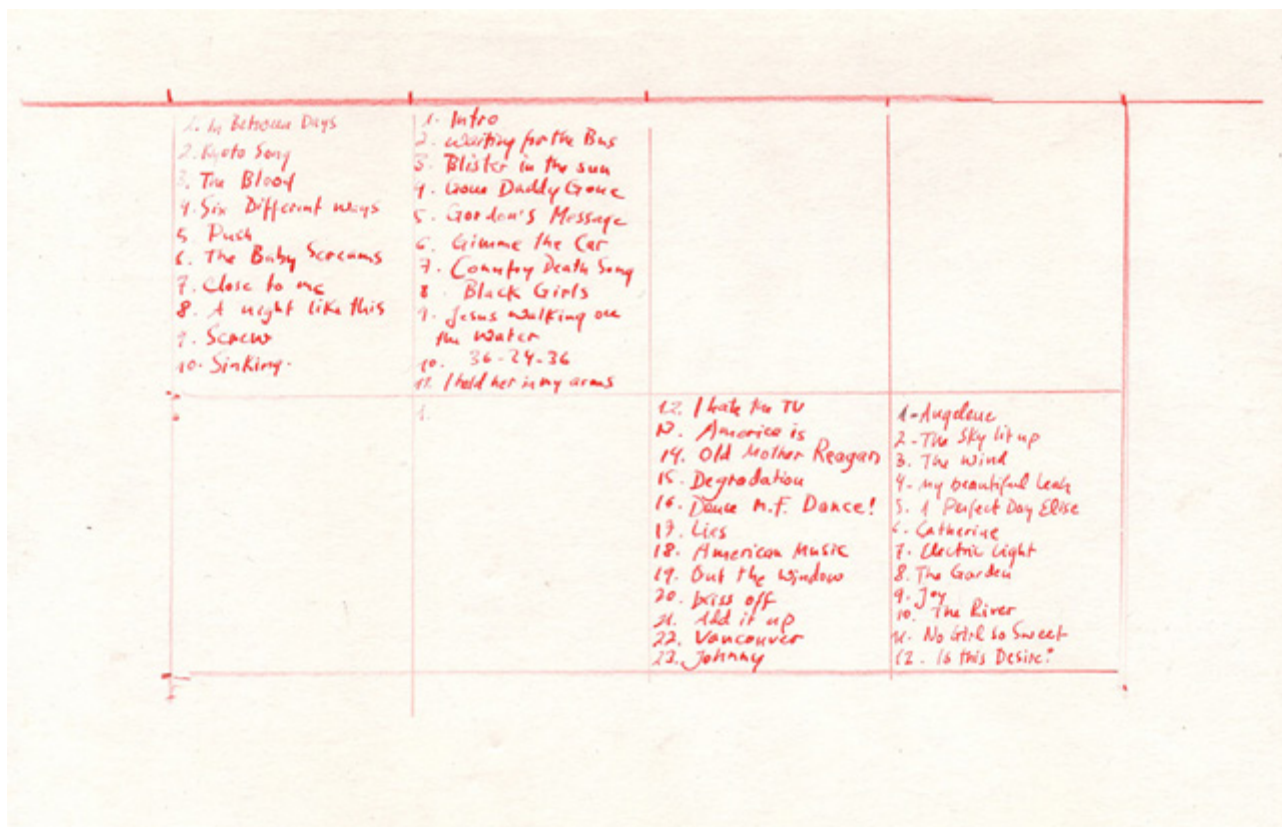 1. In Between Days
2. Kyoto Song
3. The Blood
4. Six Different ways
5 Push
6. The Baby Screams
7. Close to me
8. A night like this
9. Screw
10. Sinking.
1. Intro
2. waiting for the Bus
3. Blister in the sun
4. Gone Daddy Gone
5. Gordon's Message
6. Gimme the Car
7. Country Death Song
8. Black Girls
9. Jesus walking on
the water
10. 36-24-36
11. I held her in my arms
1.
12. I hate the TV
13. America is
14. Old Mother Reagan
15. Degradation
16. Dance M.F. Dance!
17. Lies
18. American Music
19. Out the window
20. kiss off
21. Add it up
22. Vancouver
23. Johnny
1-Angelene
2-The Sky lit up
3. The wind
4-my beautiful Leah
5. A Perfect Day Elise
6. Catherine
7. Electric Light
8. The Garden
9. Joy
10. The River
11. No Girl so Sweet
12. Is this Desire?